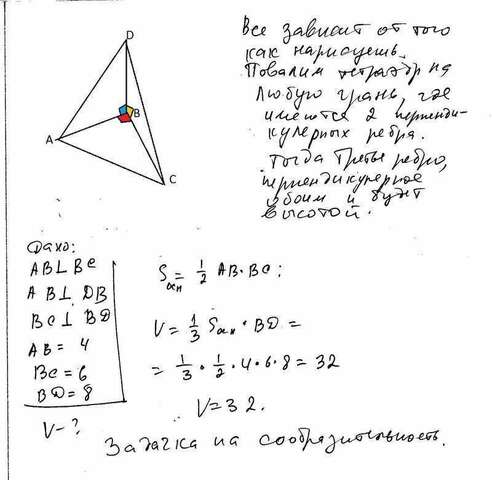 Все зависит от того
как нарисуешь.
Повалим тетраэдр на
любую грань, где
имеются 2 перпенди-
кулярных ребра.
Тогда третье ребро,
перпендикулярное
обоим и будет
высотой.
D
B
A
C
Дано:
AB⊥BC
AB⊥DB
BC⊥BD
AB=4
BC=6
BD=8
V-?
Sосн = 1/2 AB·BC;
V = 1/3 Sосн · BD =
= 1/3 · 1/2 · 4 · 6 · 8 = 32
V=32.
Задачка на сообразительность.